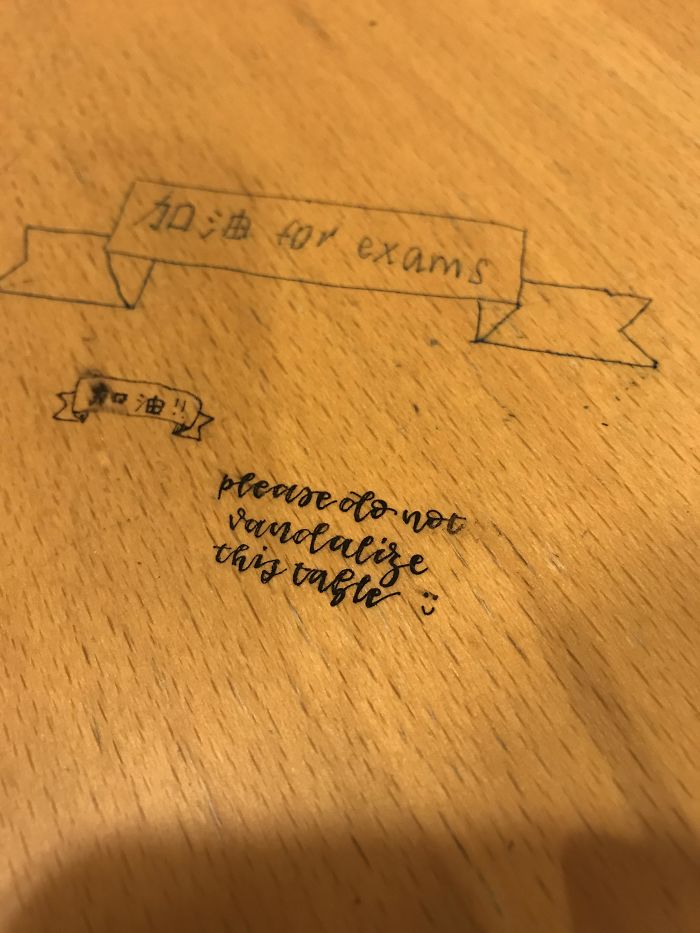 加油 for exams
加油!!
please do not
vandalize
this table :)